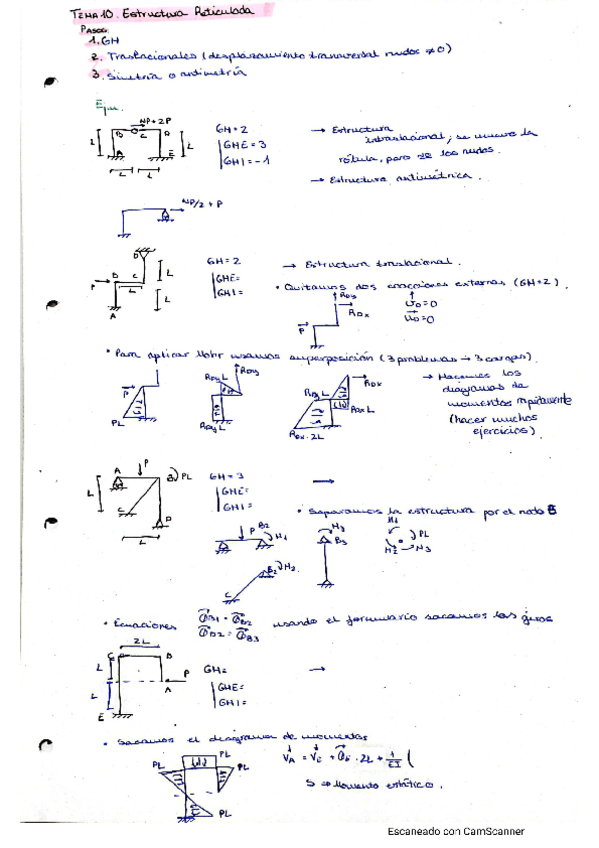 TEMA 10. Estructura Reticulada
PASOS:
1. GH
2. Traslacionales (desplazamiento transversal nudos ≠ 0)
3. Simetría o antimetría
Ejm.
NP+2P
B C D
L
A E L
L L
GH = 2
GHE = 3
GHI = -1
→ Estructura
intraslacional, se mueve la
rótula, pero no los nudos.
→ Estructura antimétrica.
NP/2 + P
D
P B C L
L
L
A
GH = 2
GHE=
GHI=
→ Estructura traslacional.
• Quitamos dos reacciones externas (GH=2).
RDy
RDx
P
uD=0
vD=0
• Para aplicar Mohr usamos superposición (3 problemas → 3 cargas).
P
PL
RDy L
RDy
RDy L
RDx
RDx L
RDx·2L
→ Hacemos los
diagramas de
momentos rápidamente
(hacer muchos
ejercicios).
A P B PL
L
C
D
L
GH = 3
GHE=
GHI=
→
• Separamos la estructura por el nodo B
P B2
M1
C B2 M2
M3
B3
M1
PL
M2 M3
• Ecuaciones θB1 = θB2
θB2 = θB3
usando el formulario sacamos los giros
2L
C B
L P
A
L
E
GH=
GHE=
GHI=
→
• Sacamos el diagrama de momentos
PL
PL PL
PL
VA = VE + θE · 2L + 1/EI (
S → Momento estático.
Escaneado con CamScanner